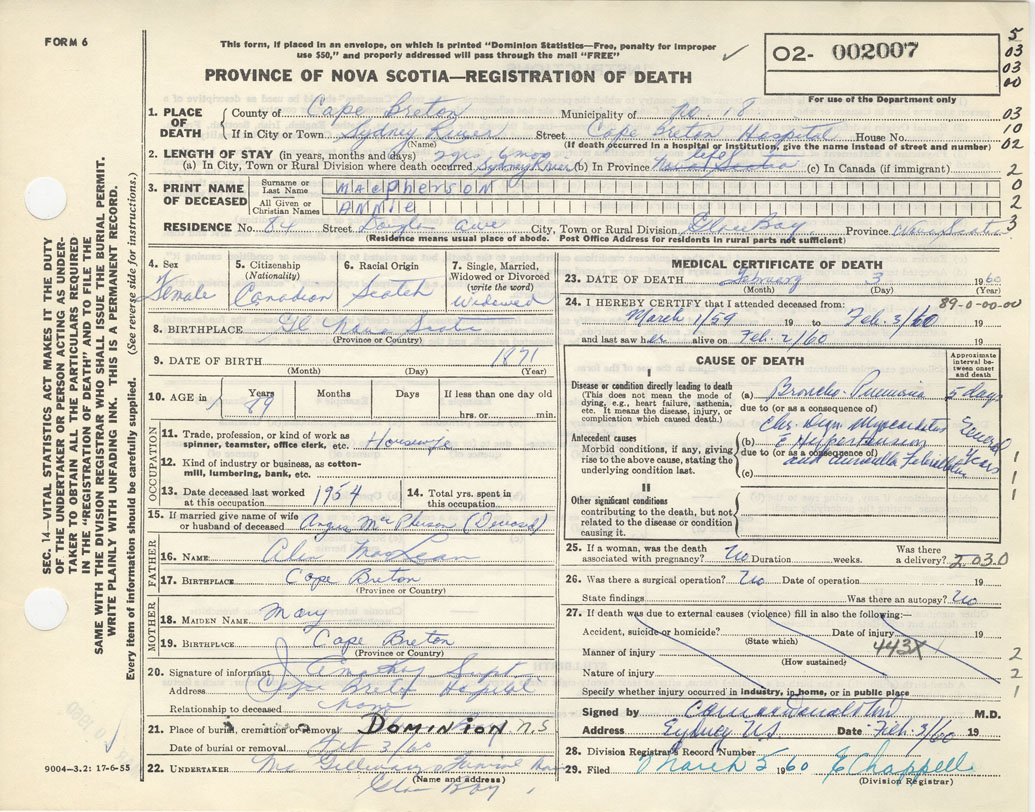 FORM 6
This form, if placed in an envelope, on which is printed "Dominion Statistics—Free, penalty for improper
use $50," and properly addressed will pass through the mail "FREE"
O2- 002007
PROVINCE OF NOVA SCOTIA—REGISTRATION OF DEATH
For use of the Department only
5
03
03
00
03
10
02
2
0
2
3
SEC. 14—VITAL STATISTICS ACT MAKES IT THE DUTY
OF THE UNDERTAKER OR PERSON ACTING AS UNDER-
TAKER TO OBTAIN ALL THE PARTICULARS REQUIRED
IN THE "REGISTRATION OF DEATH" AND TO FILE THE
SAME WITH THE DIVISION REGISTRAR WHO SHALL ISSUE THE BURIAL PERMIT.
WRITE PLAINLY WITH UNFADING INK. THIS IS A PERMANENT RECORD.
Every item of information should be carefully supplied. (See reverse side for instructions.)
1. PLACE OF DEATH County of Cape Breton Municipality of No. 18
If in City or Town Sydney River Street Cape Breton Hospital House No.
(Name) (If death occurred in a hospital or institution, give the name instead of street and number)
2. LENGTH OF STAY (in years, months and days) 2 yrs 6 mos life
(a) In City, Town or Rural Division where death occurred Sydney River (b) In Province Nova Scotia (c) In Canada (if immigrant)
3. PRINT NAME OF DECEASED Surname or Last Name MACPHERSON
All Given or Christian Names ANNIE
RESIDENCE No. 84 Street Douglas Ave City, Town or Rural Division Glace Bay Province Nova Scotia
(Residence means usual place of abode. Post Office Address for residents in rural parts not sufficient)
4. Sex Female
5. Citizenship (Nationality) Canadian
6. Racial Origin Scotch
7. Single, Married, Widowed or Divorced (write the word) Widowed
8. BIRTHPLACE Nova Scotia
(Province or Country)
9. DATE OF BIRTH 1871
(Month) (Day) (Year)
10. AGE in Years 89 Months Days If less than one day old
hrs. or min.
OCCUPATION
11. Trade, profession, or kind of work as spinner, teamster, office clerk, etc. Housewife
12. Kind of industry or business, as cotton-mill, lumbering, bank, etc.
13. Date deceased last worked at this occupation 1954
14. Total yrs. spent in this occupation
15. If married give name of wife or husband of deceased Angus MacPherson (Deceased)
FATHER
16. NAME MacLean
17. BIRTHPLACE Cape Breton
(Province or Country)
MOTHER
18. MAIDEN NAME Mary
19. BIRTHPLACE Cape Breton
(Province or Country)
20. Signature of informant Supt
Address Cape Breton Hospital
Relationship to deceased none
21. Place of burial, cremation or removal DOMINION N.S
Date of burial or removal Feb 3/60
22. UNDERTAKER Funeral Home
(Name and address)
Glace Bay
9004—3.2: 17-6-55
MEDICAL CERTIFICATE OF DEATH
23. DATE OF DEATH February 3 1960
(Month) (Day) (Year)
24. I HEREBY CERTIFY that I attended deceased from: 89-0-00-00
March 1/59 19 to Feb. 3/60 19
and last saw her alive on Feb. 2/60 19
CAUSE OF DEATH
Approximate interval between onset and death
I
Disease or condition directly leading to death
(This does not mean the mode of dying, e.g., heart failure, asthenia, etc. It means the disease, injury, or complication which caused death.)
(a) Broncho-Pneumonia 5 days
due to (or as a consequence of)
Antecedent causes
Morbid conditions, if any, giving rise to the above cause, stating the underlying condition last.
(b) Hypertension
due to (or as a consequence of)
(c)
Several Years
1
1
1
II
Other significant conditions
contributing to the death, but not related to the disease or condition causing it.
25. If a woman, was the death associated with pregnancy? No Duration weeks. Was there a delivery? 2.030
26. Was there a surgical operation? No Date of operation 19
State findings Was there an autopsy? No
27. If death was due to external causes (violence) fill in also the following:—
Accident, suicide or homicide? Date of injury 19
(State which)
443X
Manner of injury
(How sustained)
Nature of injury
Specify whether injury occurred in industry, in home, or in public place
2
2
1
Signed by M.D.
Address Sydney N.S. Date Feb. 3/60 19
28. Division Registrar's Record Number
29. Filed March 5 1960 E Chappell
(Division Registrar)